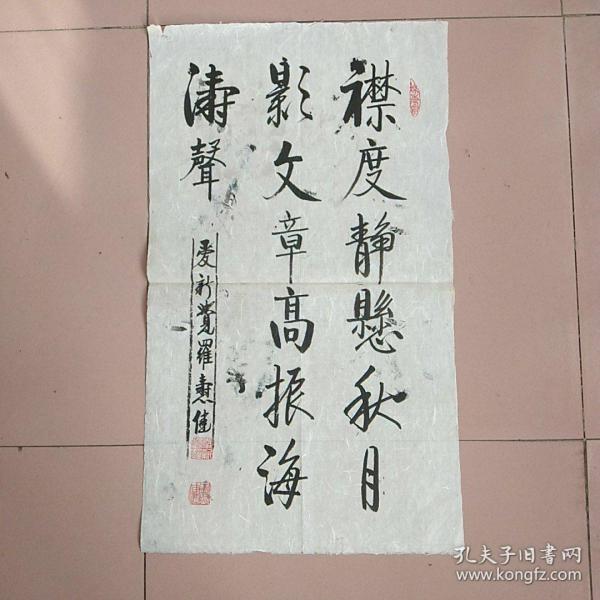 襟度靜懸秋月
影文章高振海
濤聲
愛新覺羅燾佳
孔夫子旧书网
www.kongfz.com